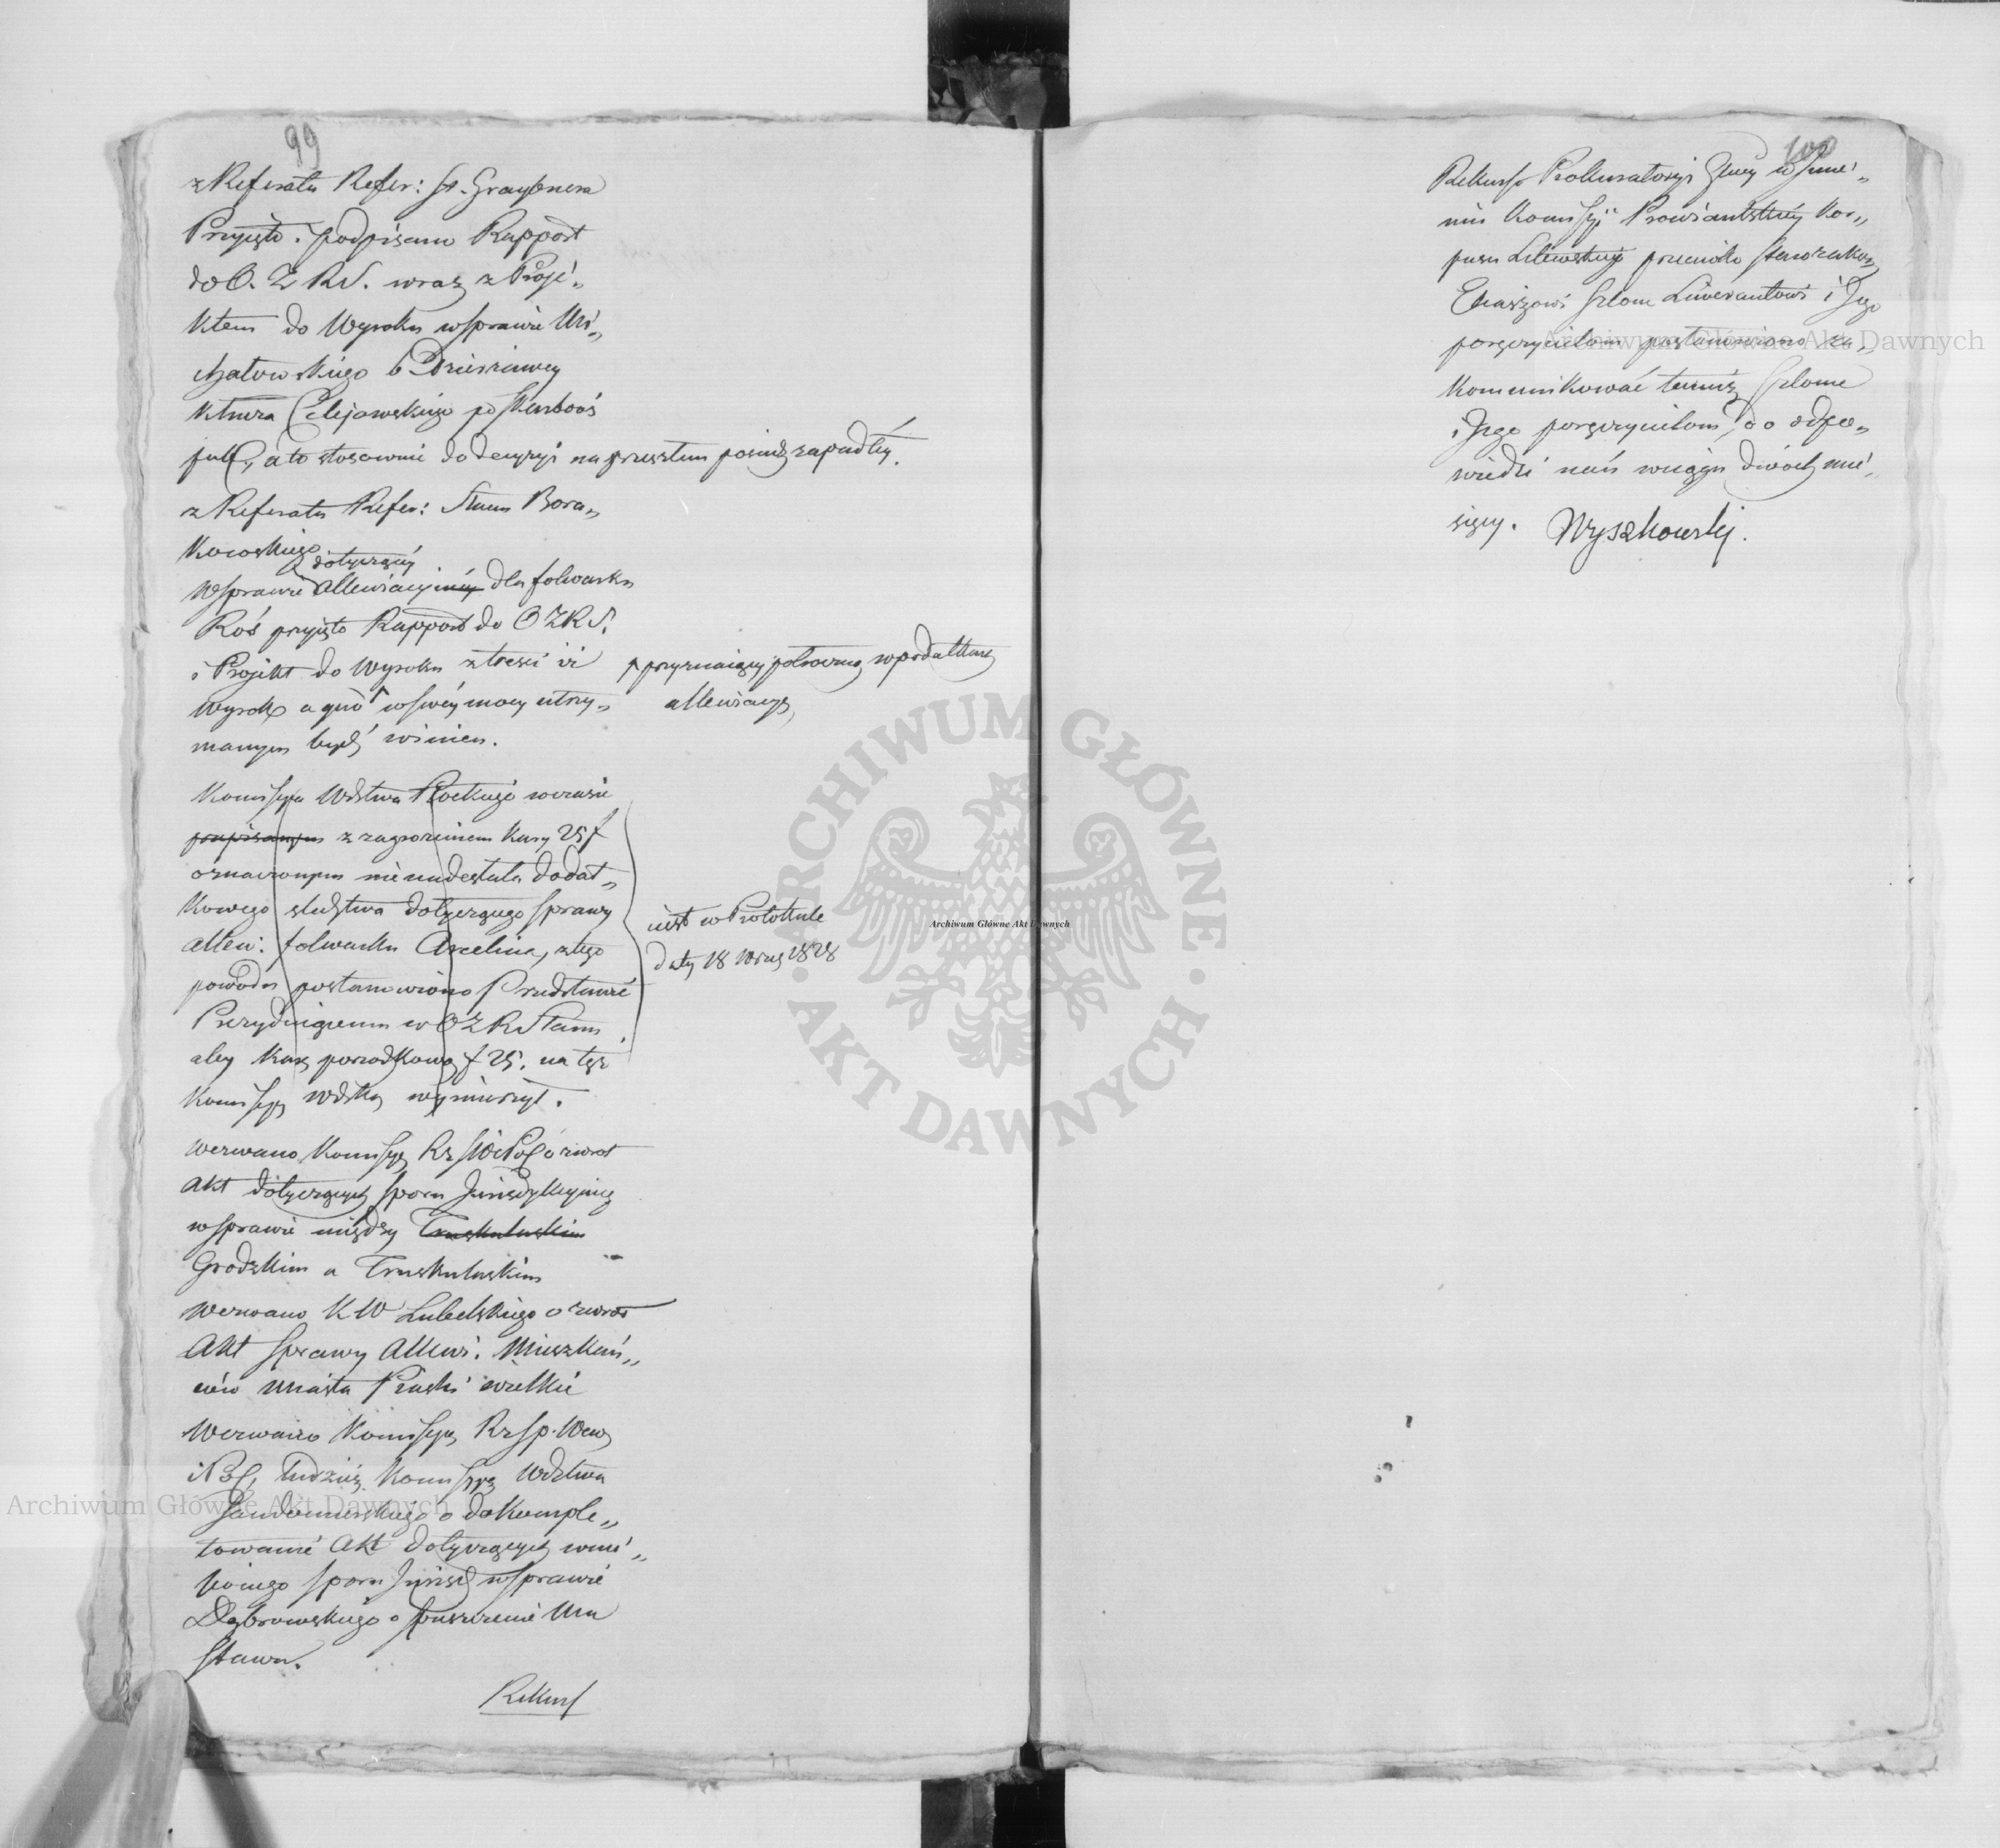 99
z Referatu Refer: St. Graybnera
Przyięto i podpisano Rapport
do O. Z. R. S. wraz z Proje„
ktem do Wyroku w sprawie Mi„
chałowskiego b Dzierżawcy
Klucza Celejowskiego po Skarbowi
a to stosownie do decyzyi na przeszłem posiedz zapadłéy.
z Referatu Refer: Stanu Bora„
kowskiego
dotyczącéy
w sprawie allewiacyinéy dla folwarku
Roś przyięto Rapport do O Z R S.
i Projekt do Wyroku z treści iż
przyznaiący połowczną w podatkach
allewiacyę,
Wyrok a quo w swéy mocy utrzy„
manym bydź winien.
Kommissya Wdztwa Płockiego w czasie
przepisanym z zagrożeniem kary 25 f
oznaczonym nie nadesłała dodat„
kowego śledztwa dotyczącego sprawy
allew: folwarku Arcelina, z tego
powodu postanowiono Przedstawić
Prezyduiącemu w O Z R Stanu
aby karę porządkową f 25. na tęż
Kommissyę Wdzką wymierzył.
iest w Protokule
daty 18 Wrześ 1828
Wezwano Kommissyę Rz o zwrot
Akt dotyczących sporu Jurisdykcyinég
w sprawie między Truskulaskim
Grodzkim a Truskulaskim
Wezwano K W Lubelskiego o zwrot
Akt sprawy Allewi. Mieszkań„
ców Miasta Piaski wielkie
Wezwano Kommissyę Rz Sp. Wew
i Pol, tudzież Kommissyę Wdztwa
Sandomierskiego o dokomple„
towanie Akt dotyczących wznie„
sionego sporu Jurisd w sprawie
Dąbrowskiego o spuszczenie Mu
Stawu.
Rekurs
100
Rekurs Prokuratoryi Głney w Imie„
niu Komissyi Prowiantskiéy Kor„
pusu Litewskiego przeciwko Starozakon
Eliaszowi Szlom Liwerantowi i Jego
poręczycielom postanowiono za„
kommunikować temuż Szlome
i Jego poręczycielom, do odpo„
wiedzi nań w ciągu dwóch mie„
sięcy. Wyszkowski.
Archiwum Główne Akt Dawnych
Archiwum Główne Akt Dawnych
Archiwum Główne Akt Dawnych
ARCHIWUM GŁÓWNE
AKT DAWNYCH